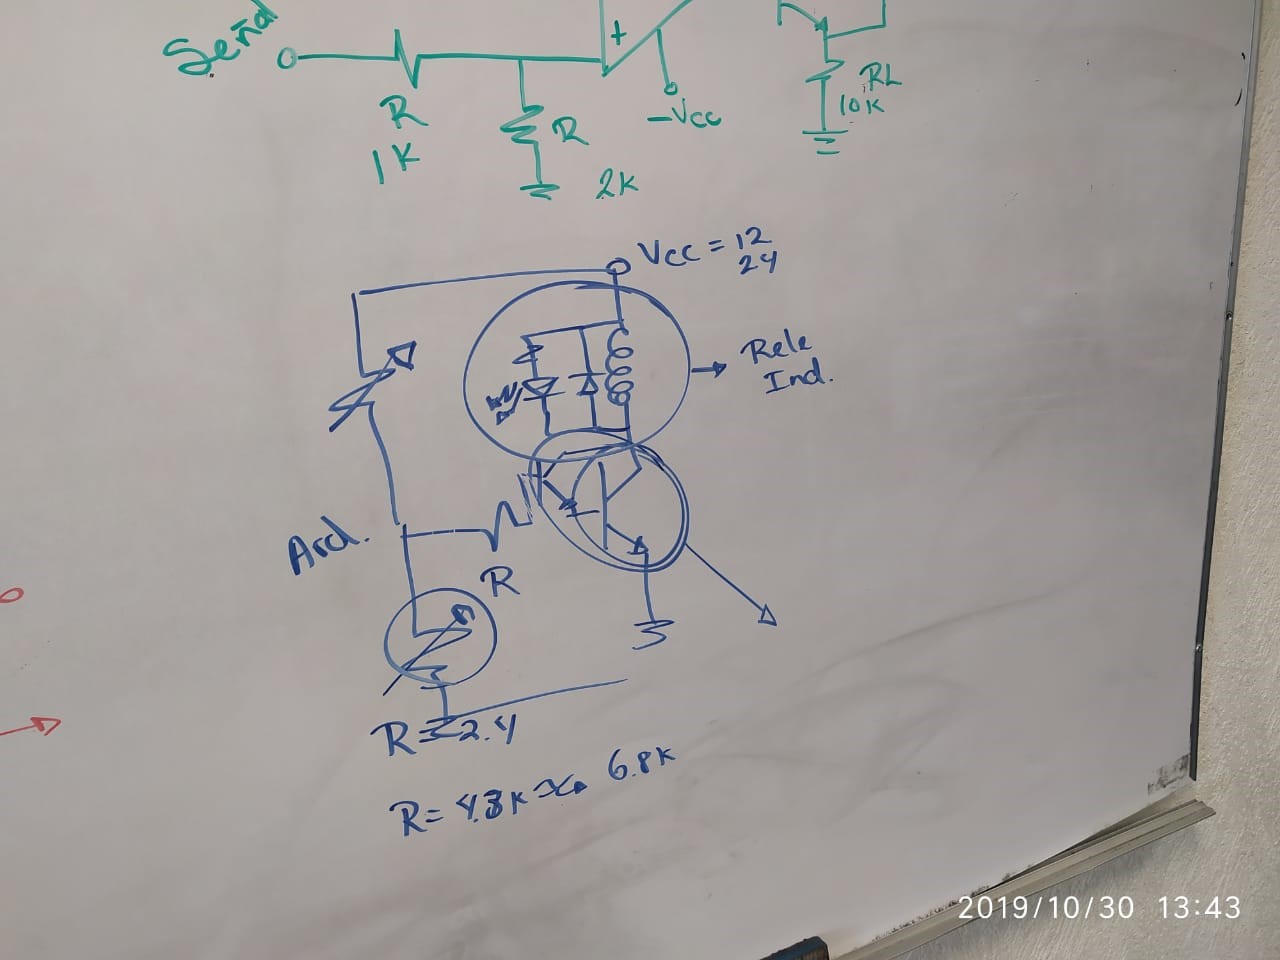 Señal
+
R
1K
R
2K
-Vcc
RL
10K
Vcc = 12
24
Rele
Ind.
Ard.
R
R = 2.4
R = 4.3K ≈ 6.8K
2019/10/30 13:43